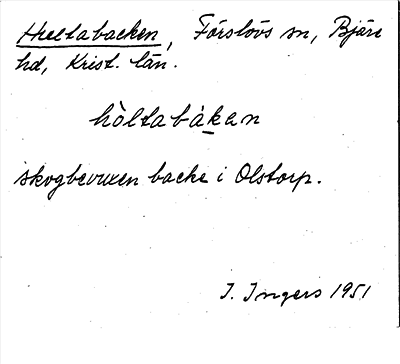 Hultabacken, Förslövs sn, Bjäre
hd, Krist. län.
hòltabákan
skogbevuxen backe i Olstorp.
I. Ingers 1951